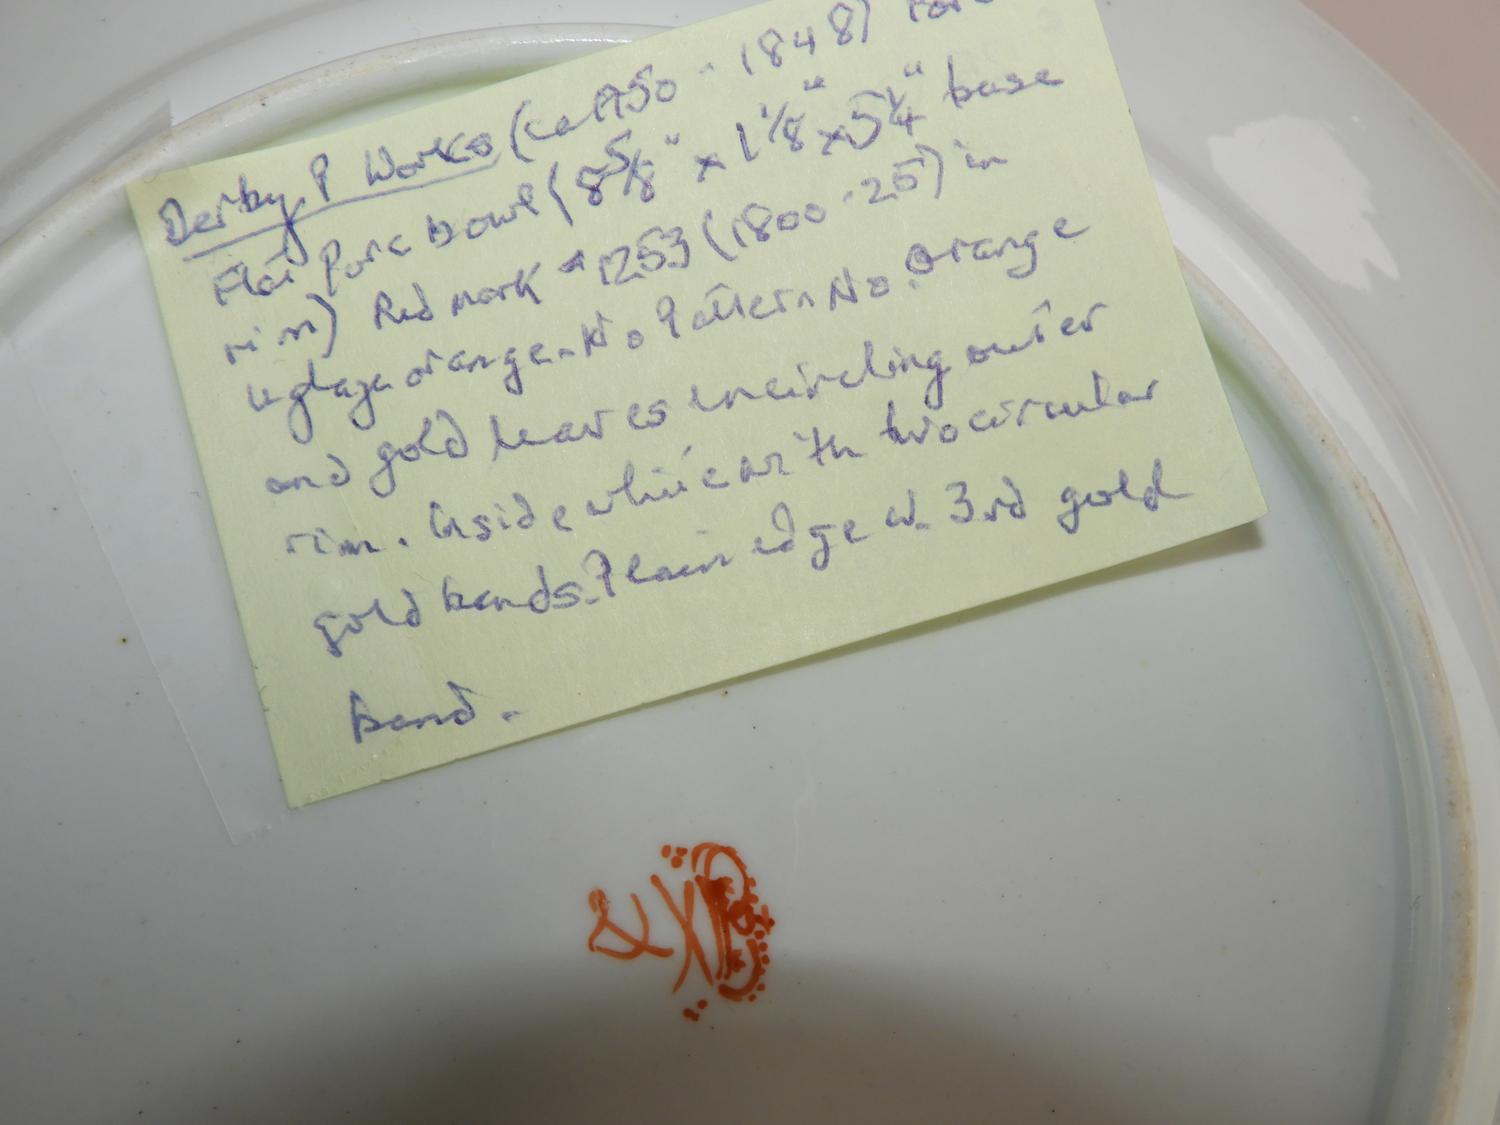 Derby P Works (ca 1750 - 1848)
Flat Porc bowl (8 5/8" x 1 1/8" x 5 1/4" base
rim) Red mark #1253 (1800-25) in
orange. No Pattern No. Orange
and gold leaves encircling outer
rim. Inside white with two circular
gold bands. Plain edge w. 3rd gold
band.